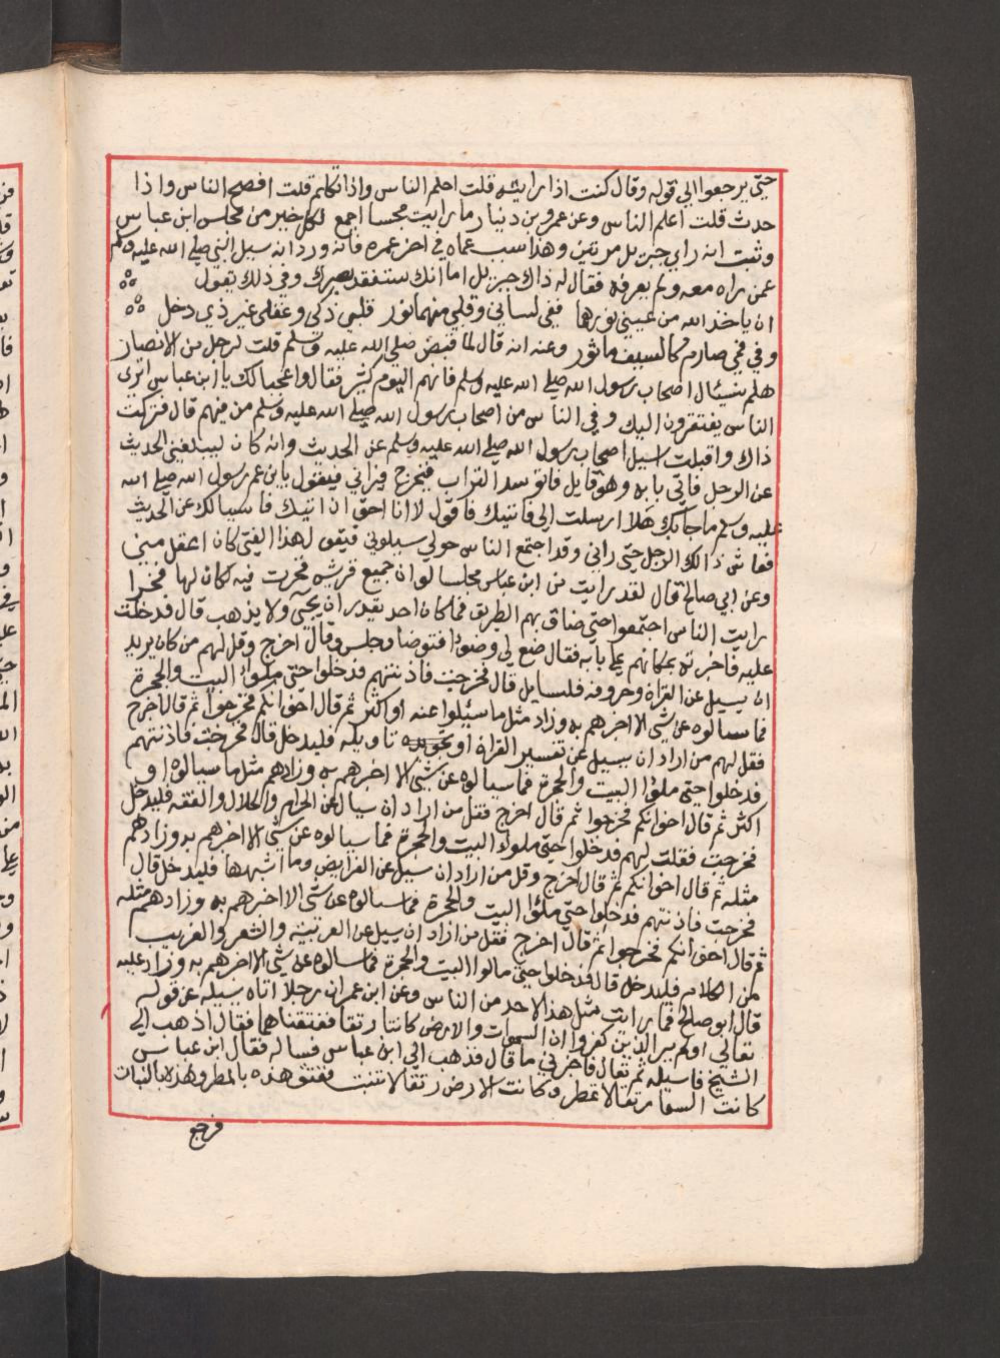 حتى يرجعوا الى قوله وقال كنت اذا رايته قلت احلم الناس واذا تكلم قلت افصح الناس واذا
حدث قلت اعلم الناس وعن عمرو بن دينار ما رايت مجلسا اجمع لكل خير من مجلس ابن عباس
وثبت انه راى جبريل مرتين وهذا سبب عماه في اخر عمره فانه ورد انه سيل النبي صلى الله عليه وسلم
عمن راه معه ولم يعرفه فقال له ذاك جبريل اما انك ستفقد بصرك وفي ذلك يقول
ان ياخذ الله من عيني نورهما ففي لساني وقلبي منهما نور قلبي ذكي وعقلي غير ذي دخل
وفي فمي صارم كالسيف ماثور وعنه انه قال لما قبض صلى الله عليه وسلم قلت لرجل من الانصار
هلم نسئال اصحاب رسول الله صلى الله عليه وسلم فانهم اليوم كثير فقال واعجبا لك يا ابن عباس اترى
الناس يفتقرون اليك وفي الناس من اصحاب رسول الله صلى الله عليه وسلم من فيهم قال فتركت
ذاك واقبلت اسيل اصحاب رسول الله صلى الله عليه وسلم عن الحديث وانه كان ليبلغني الحديث
عن الرجل فاتي بابه وهو قايل فاتوسد التراب فيخرج فيراني فيقول يا ابن عم رسول الله صلى الله
عليه وسلم ما جابك هلا ارسلت الي فاتيك فاقول لا انا احق ان اتيك فاسيالك عن الحديث
فعاش ذالك الرجل حتى راني وقد اجتمع الناس حولي سيلوني فيقول هذا الفتى كان اعقل مني
وعن ابي صالح قال لقد رايت من ابن عباس مجلسا لو ان جميع قريش فخرت فيه لكان لها فخرا
رايت الناس اجتمعوا حتى ضاق بهم الطريق فما كان احد يقدر ان يجي ولا يذهب قال فدخلت
عليه فاخبرته بمكانهم على بابه فقال ضع لي وضوا فتوضا وجلس وقال اخرج وقل لهم من كان يريد
ان يسيل عن القراة وحروفه فليسايل قال فخرجت فاذنتهم فدخلوا حتى ملوا البيت والحجرة
فما سيالوه عن شي الا اخبرهم به وزاد مثل ما سيلوا عنه او اكثر ثم قال اخوانكم فخرجوا ثم قال اخرج
فقل لهم من اراد ان يسيل عن تفسير القراة او تاويله فليدخل قال فخرجت فاذنتهم
فدخلوا حتى ملوا البيت والحجرة فما سيالوه عن شي الا اخبرهم به وزادهم مثل ما سيالوه او
اكثر ثم قال اخوانكم فخرجوا ثم قال اخرج فقل من اراد ان سيال عن الحرام والحلال والفقه فليدخل
فخرجت فقلت لهم فدخلوا حتى ملوا البيت والحجرة فما سيالوه عن شي الا اخبرهم به وزادهم
مثله ثم قال اخوانكم ثم قال اخرج وقل من اراد ان سيل عن الفرايض وما اشبهها فليدخل قال
فخرجت فاذنتهم فدخلوا حتى ملوا البيت والحجرة فما سيالوه عن شي الا اخبرهم به وزادهم مثله
ثم قال اخوانكم فخرجوا ثم قال اخرج فقل من اراد ان سيل عن العربية والشعر والغريب
من الكلام فليدخل قال فدخلوا حتى مالوا البيت والحجرة فما سالوه عن شي الا اخبرهم به وزاد عليه
قال ابو صالح فما رايت مثل هذا لاحد من الناس وعن ابن عمر ان رجلا اتاه يسيله عن قوله
تعالى اولم ير الذين كفروا ان السموات والارض كانتا رتقا ففتقناهما فقال اذهب الى
الشيخ فاسيله ثم تعال فاخبرني ما قال فذهب الى ابن عباس فساله فقال ابن عباس
كانت السما رتقا لا تمطر وكانت الارض رتقا لا تنبت ففتق هذه بالمطر وهذه بالنبات
فرجع